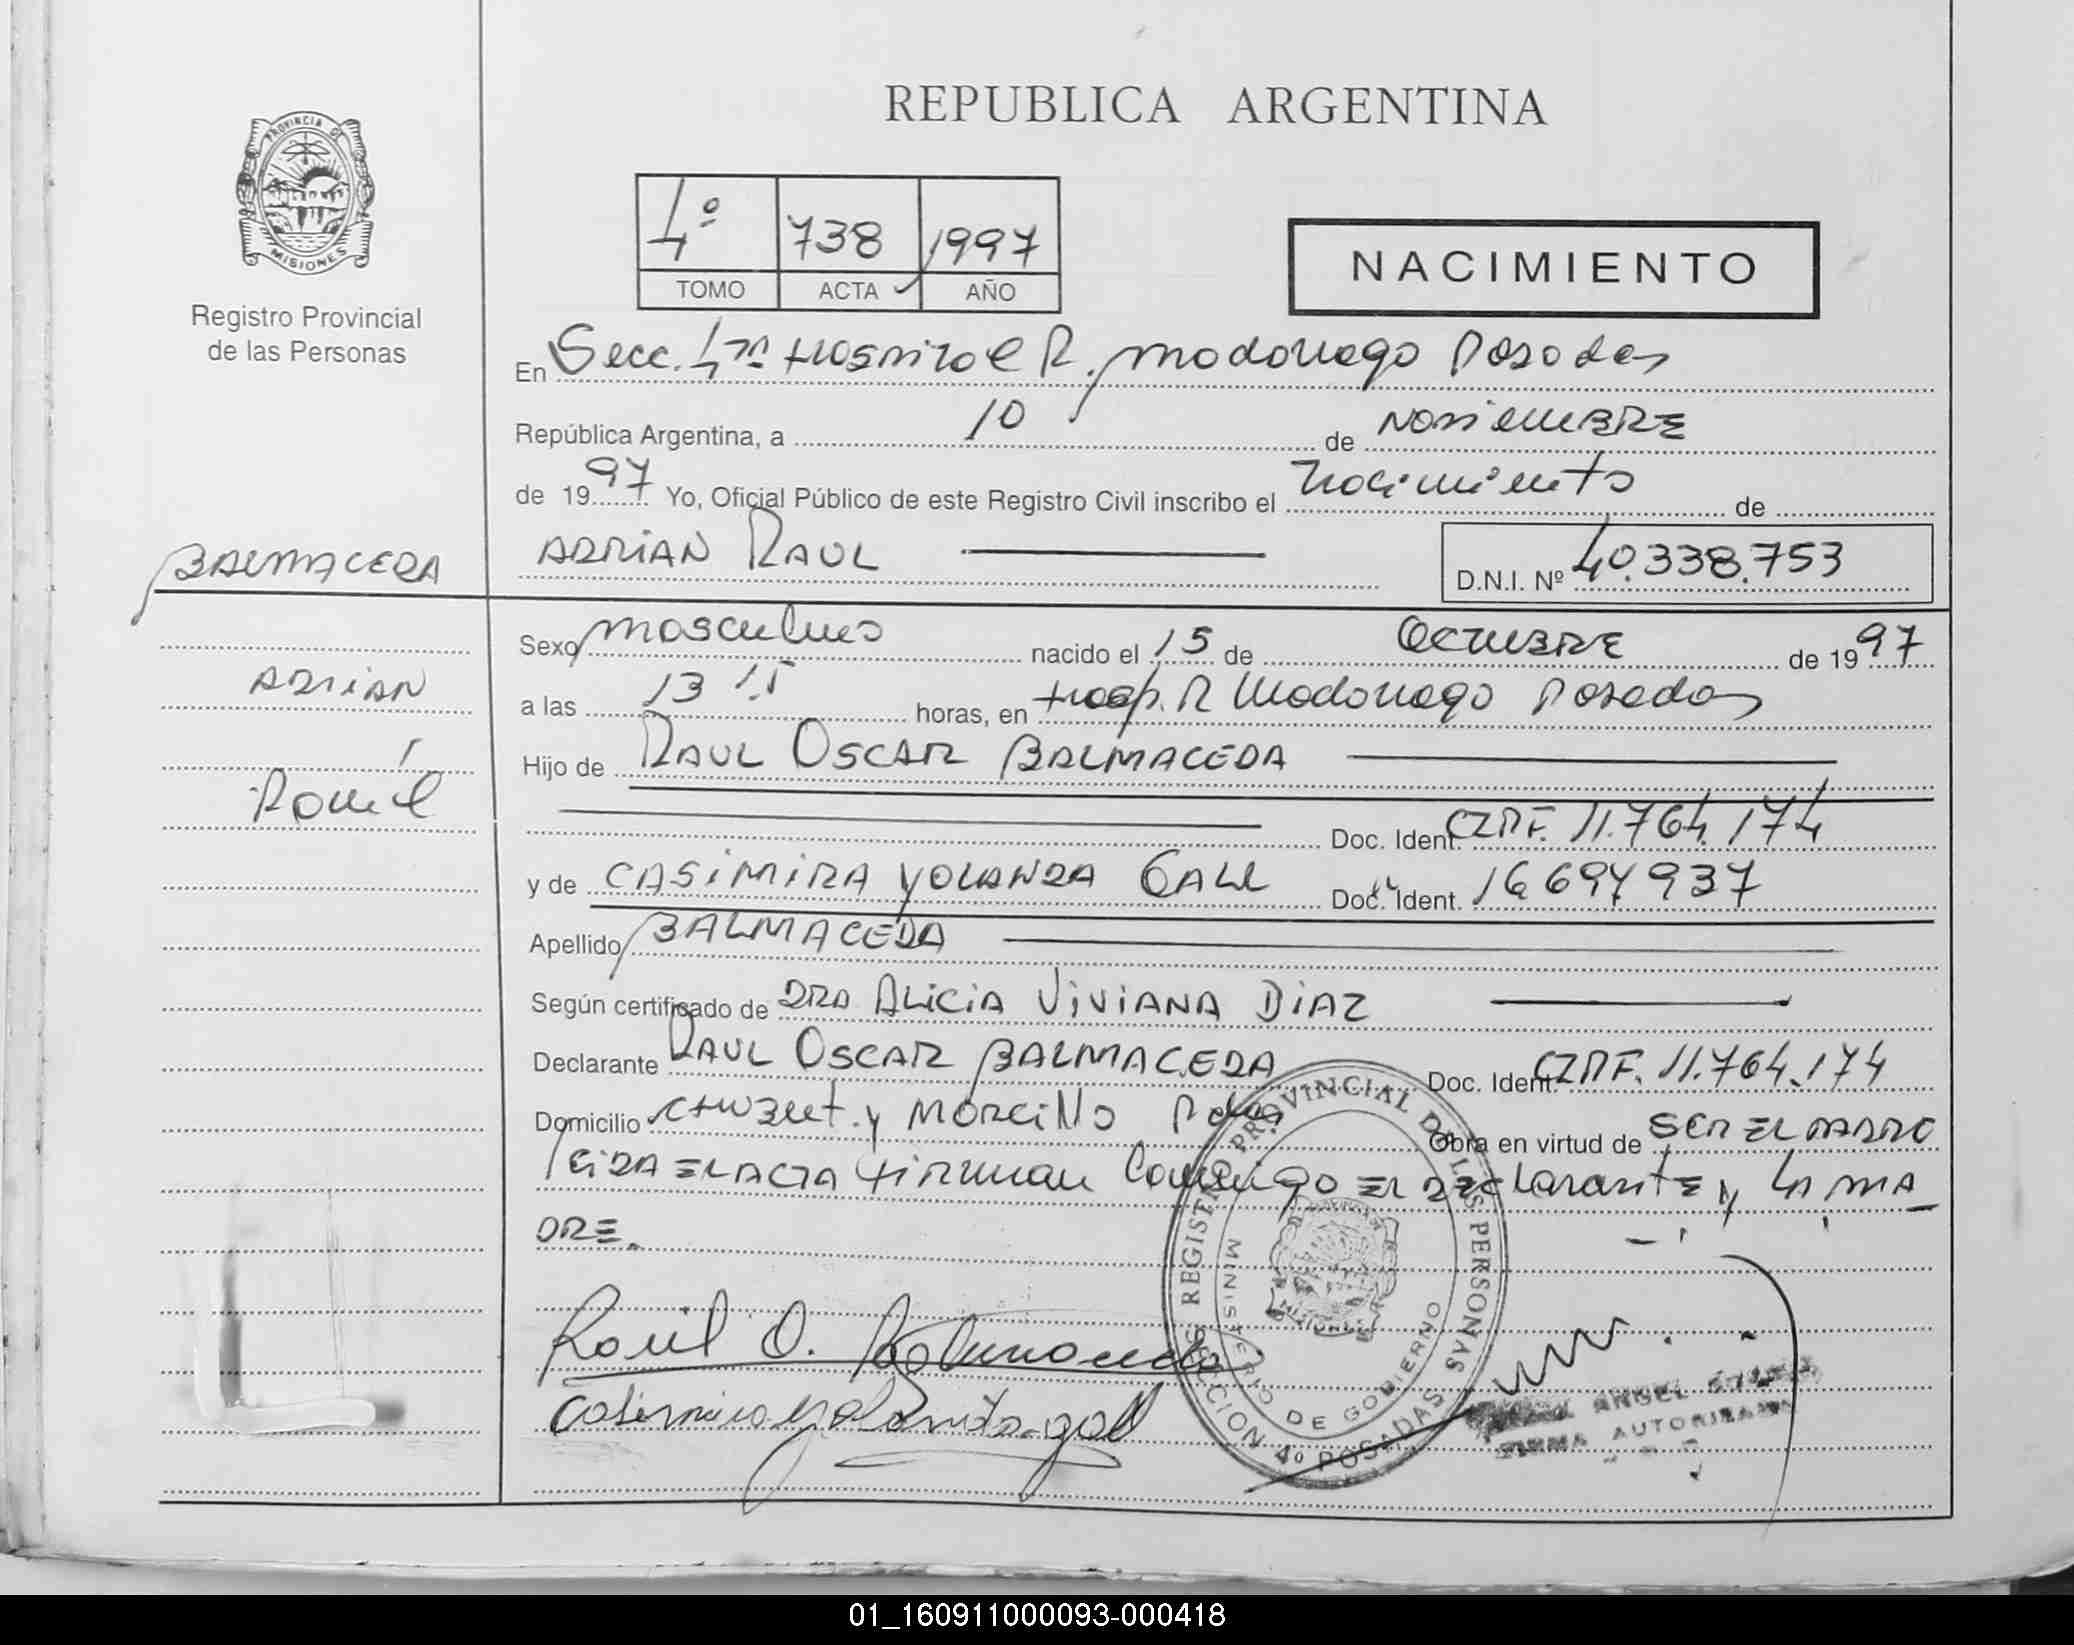 REPUBLICA ARGENTINA
PROVINCIA DE
MISIONES
Registro Provincial
de las Personas
4º 738 1997
TOMO ACTA AÑO
NACIMIENTO
En Secc. 4ta Hospital R. Madariaga Posadas
República Argentina, a 10 de NOVIEMBRE
de 1997 Yo, Oficial Público de este Registro Civil inscribo el nacimiento de
ADRIAN RAUL
D.N.I. Nº 40.338.753
BALMACEDA
ADRIAN
Raúl
Sexo masculino nacido el 15 de OCTUBRE de 1997
a las 13 15 horas, en Hosp. R Madariaga Posadas
Hijo de RAUL OSCAR BALMACEDA
Doc. Ident. CZPF. 11.764.174
y de CASIMIRA YOLANDA GALL Doc. Ident. 16694937
Apellido BALMACEDA
Según certificado de DRA ALICIA VIVIANA DIAZ
Declarante RAUL OSCAR BALMACEDA Doc. Ident. CZPF. 11.764.174
Domicilio y Pdas Obra en virtud de SER EL PADRE
LEIDA EL ACTA Firman Conmigo EL DECLARANTE y LA MA
DRE.
REGISTRO PROVINCIAL DE LAS PERSONAS
MINISTERIO DE GOBIERNO
SECCION 4º POSADAS
Raúl O. Balmaceda
Casimira yolanda gall
ANGEL
FIRMA AUTORIZADA
01_160911000093-000418